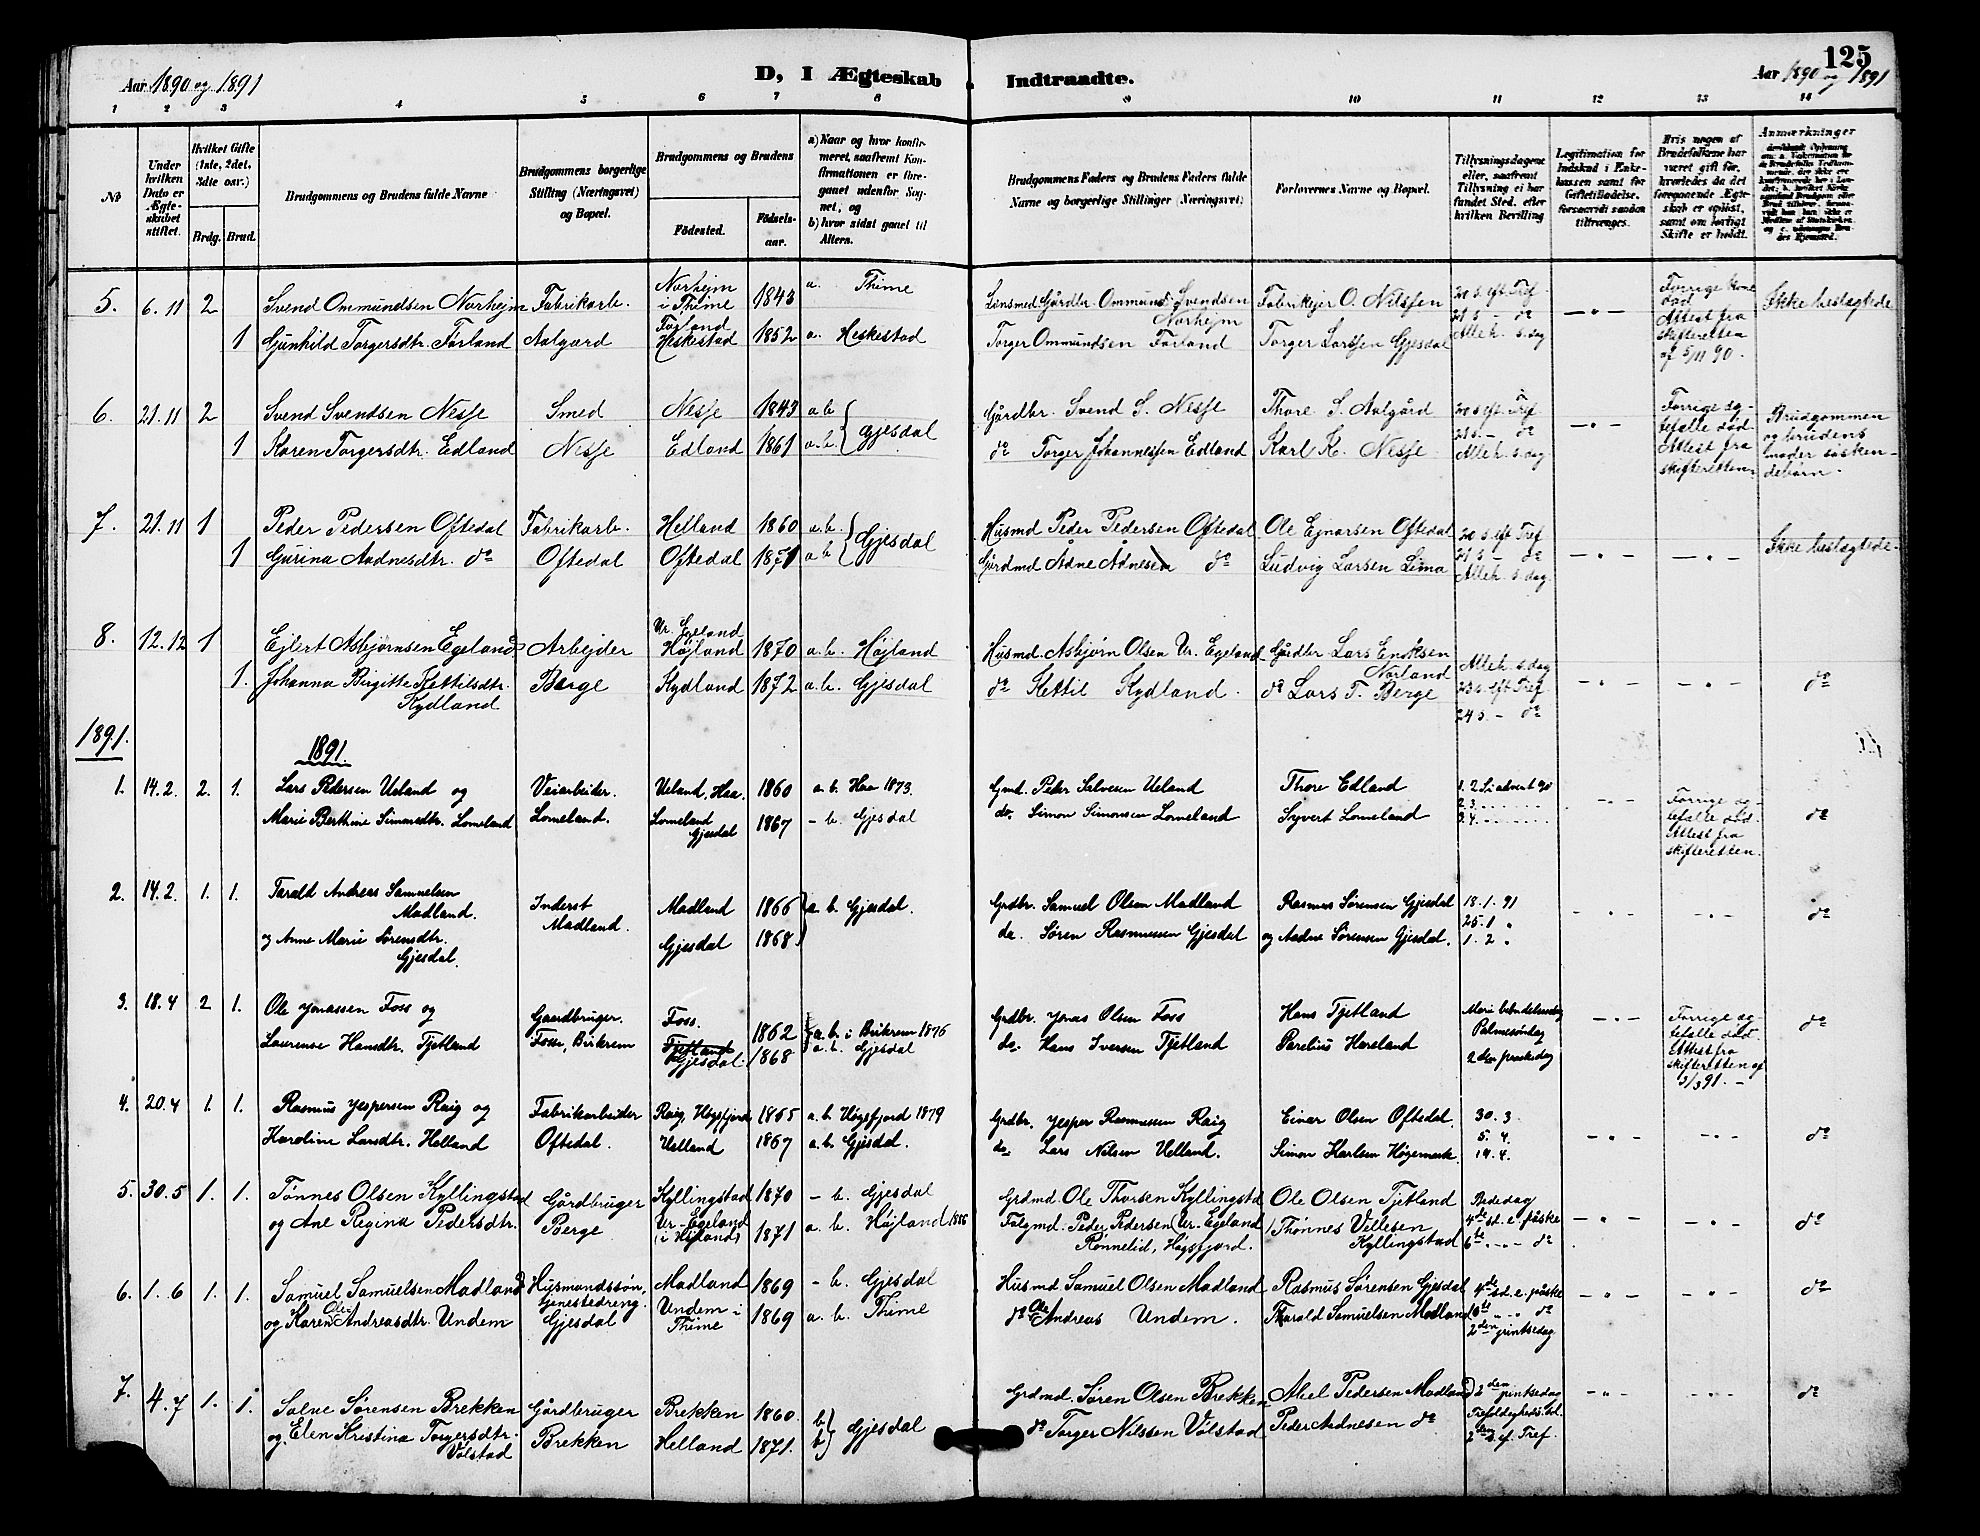 125
Aar 1890 og 1891
D, I Ægteskab Indtraadte.
Aar 1890 og 1891
1 2 3 4 5 6 7 8 9 10 11 12 13 14
No
Under hvilken Dato er Ægteskabet stiftet.
Hvilket Gifte (1ste, 2det, 3die osv.)
Brdg. Brud.
Brudgommens og Brudens fulde Navne
Brudgommens borgerlige Stilling (Næringsvei) og Bopæl.
Brudgommens og Brudens
Födested. Födselsaar.
a) Naar og hvor konfirmeret, saafremt Konfirmationen er foregaaet udenfor Sognet, og
b) hvor sidst gaaet til Alters.
Brudgommens Faders og Brudens Faders fulde Navne og borgerlige Stillinger (Næringsvei)
Forlovernes Navne og Bopæl.
Tillysningsdagene eller, saafremt Tillysning ei har fundet Sted, efter hvilken Bevilling
Legitimation for Indskud i Enkekassen samt for Giftetilladelse, forsaavidt saadan tiltrænges.
Hvis nogen af Brudefolkene har været gift för, hvorledes da det foregaaende Ægteskab er oplöst, samt om lovligt Skifte er holdt.
Anmærkninger
5. 6.11 2 Svend Ommundsen Norhejm Fabrikarb. Norhejm i Thime 1843 a. Thime Gårdbr. Ommund Svendsen Norhejm Fabrikejer O. Nilssen 20 s. eft. Tref Forrige kone død Ikke beslægtede
1 Gunhild Torgersdtr. Førland Aalgaard Førland Heskestad 1852 a. Heskestad Torger Ommundsen Førland Torger Larsen Gjesdal 21 s. - do Alleh. s. dag - " - Attest fra skifteretten af 5/11 90.
6. 21.11 2 Svend Svendsen Nesse Smed Nesse 1843 a b Gjesdal Gårdbr. Svend S. Nesse Thore S. Aalgård 20 s. eft. Tref Forrige ægtefælle død Brudgommen og brudens moder søskendebørn.
1 Karen Torgersdtr. Edland Nesse Edland 1861 a. b. do Torger Johannessen Edland Karl K. Nesse 21 s. - do Alleh. s. dag - " - Attest fra skifteretten
7. 21.11 1 Peder Pedersen Oftedal Fabrikarb. Helland 1860 a. b. Gjesdal Husmd Peder Pedersen Oftedal Ole Ejnarsen Oftedal 20 s. eft Tref Ikke beslægtede.
1 Gurina Aadnesdtr. do Oftedal Oftedal 1871 a b Gårdmd Ådne Ådnesen do Ludvig Larsen Lima 21 s - do Alleh. s. dag - " - - " -
8. 12.12 1 Ejlert Asbjørnsen Egeland Arbejder Ur. Egeland Højland 1870 a. b. Højland Husmd. Asbjørn Olsen Ur. Egeland Gårdbr Lars Eriksen Norland Alleh. s. dag
1. Johanna Birgitte Kettilsdtr. Kydland Berge Kydland 1872 a. b. Gjesdal do Kettil Kydland. do Lars T. Berge 23 s. eft Tref 24 s. - do - " - - " - do
1891.
1891.
1. 14.2. 2. 1. Lars Pedersen Ueland og Veiarbeider. Ueland, Haa. 1860 a. b. Haa 1873. Gmd. Peder Salvesen Ueland Thore Edland 1. 2 S. i advent 90 Forrige ægtefælle død.
Marie Berthine Simonsdtr. Lomeland Lomeland. Lomeland Gjesdal 1867 - b. Gjesdal do. Simon Simonsen Lomeland Syvert Lomeland - " - Attest fra skifteretten. do
2. 14.2. 1. 1. Tarald Andreas Samuelsen Madland. Inderst Madland. Madland 1866 a. b. Gjesdal. Grdbr. Samuel Olsen Madland Rasmus Sørensen Gjesdal 18.1. 91
og Anne Marie Sørensdtr. Gjesdal. Gjesdal 1868 do. Søren Rasmussen Gjesdal og Aadne Sørensen Gjesdal. 25.1 " 1.2 " - " - - " - do
3. 18.4 2 1. Ole Jonassen Foss og Gaardbruger. Foss. 1862 a. b. i Birkrem 1876 Grdbr. Jonas Olsen Foss Hans Tjetland Marie bebudelsesdag Palmesøndag Forrige ægtefælle død. do
Laurense Hansdtr. Tjetland Fosse, Birkrem Tjetland Gjesdal. 1868 a. b. Gjesdal do. Hans Iversen Tjetland Parelius Haveland 2den paaskedag - " - Attest fra skifteretten af 3/3 91. -
4. 20.4 1. 1. Rasmus Jespersen Raig og Fabrikarbeider Raig, Høgsfjord 1865 a. b. Høgsfjord 1879 Grdbr. Jesper Rasmussen Raig Einar Olsen Oftedal. 30.3.
Karoline Larsdtr. Helland Oftedal. Helland 1867 a. b. Gjesdal. do. Lars Nilsen Helland. Simon Karlsen Høgemork. 5.4. 19.4. - " - - " - do
5. 30.5 1. 1. Tønnes Olsen Kyllingstad Gårdbruger Kyllingstad 1870 - b. Gjesdal Grdmd Ole Thorsen Kyllingstad Ole Olsen Tjetland Bededag
og Ane Regina Pedersdtr. Berge Ur-Egeland (i Højland) 1871 a. b. Højland 1886 Peder Pedersen (Ur. Egeland Rønnelid, Høgsfjord. Thønnes Villesen Kyllingstad 4de sd. e. påske 6te " - - do - " - - " - do
6. 1.6 1. 1. Samuel Samuelsen Madland Husmandssøn, Madland 1869 - b. Gjesdal Husmd Samuel Olsen Madland Rasmus Sørensen Gjesdal 4de sd. e. påske - " - - " - do
og Karen Ole Andreasdtr. Undem Tjenestedreng. Gjesdal Undem i Thime 1869 a. b. Thime do Ole Andreas Undem. Tharald Samuelsen Madland do 2den pintsedag
7. 4.7 1. 1. Salve Sørensen Brekken Gårdbruger Brekken 1860. b Gjesdal Grdmd. Søren Olsen Brekken Abel Pedersen Madland 2den pintsedag - " - - " - do
og. Elen Kristina Torgersdtr. Vølstad Brekken Helland 1871. b do Torger Nilssen Vølstad Peder Aadnesen do Trefoldigheds. 2den s. ef. Tref.